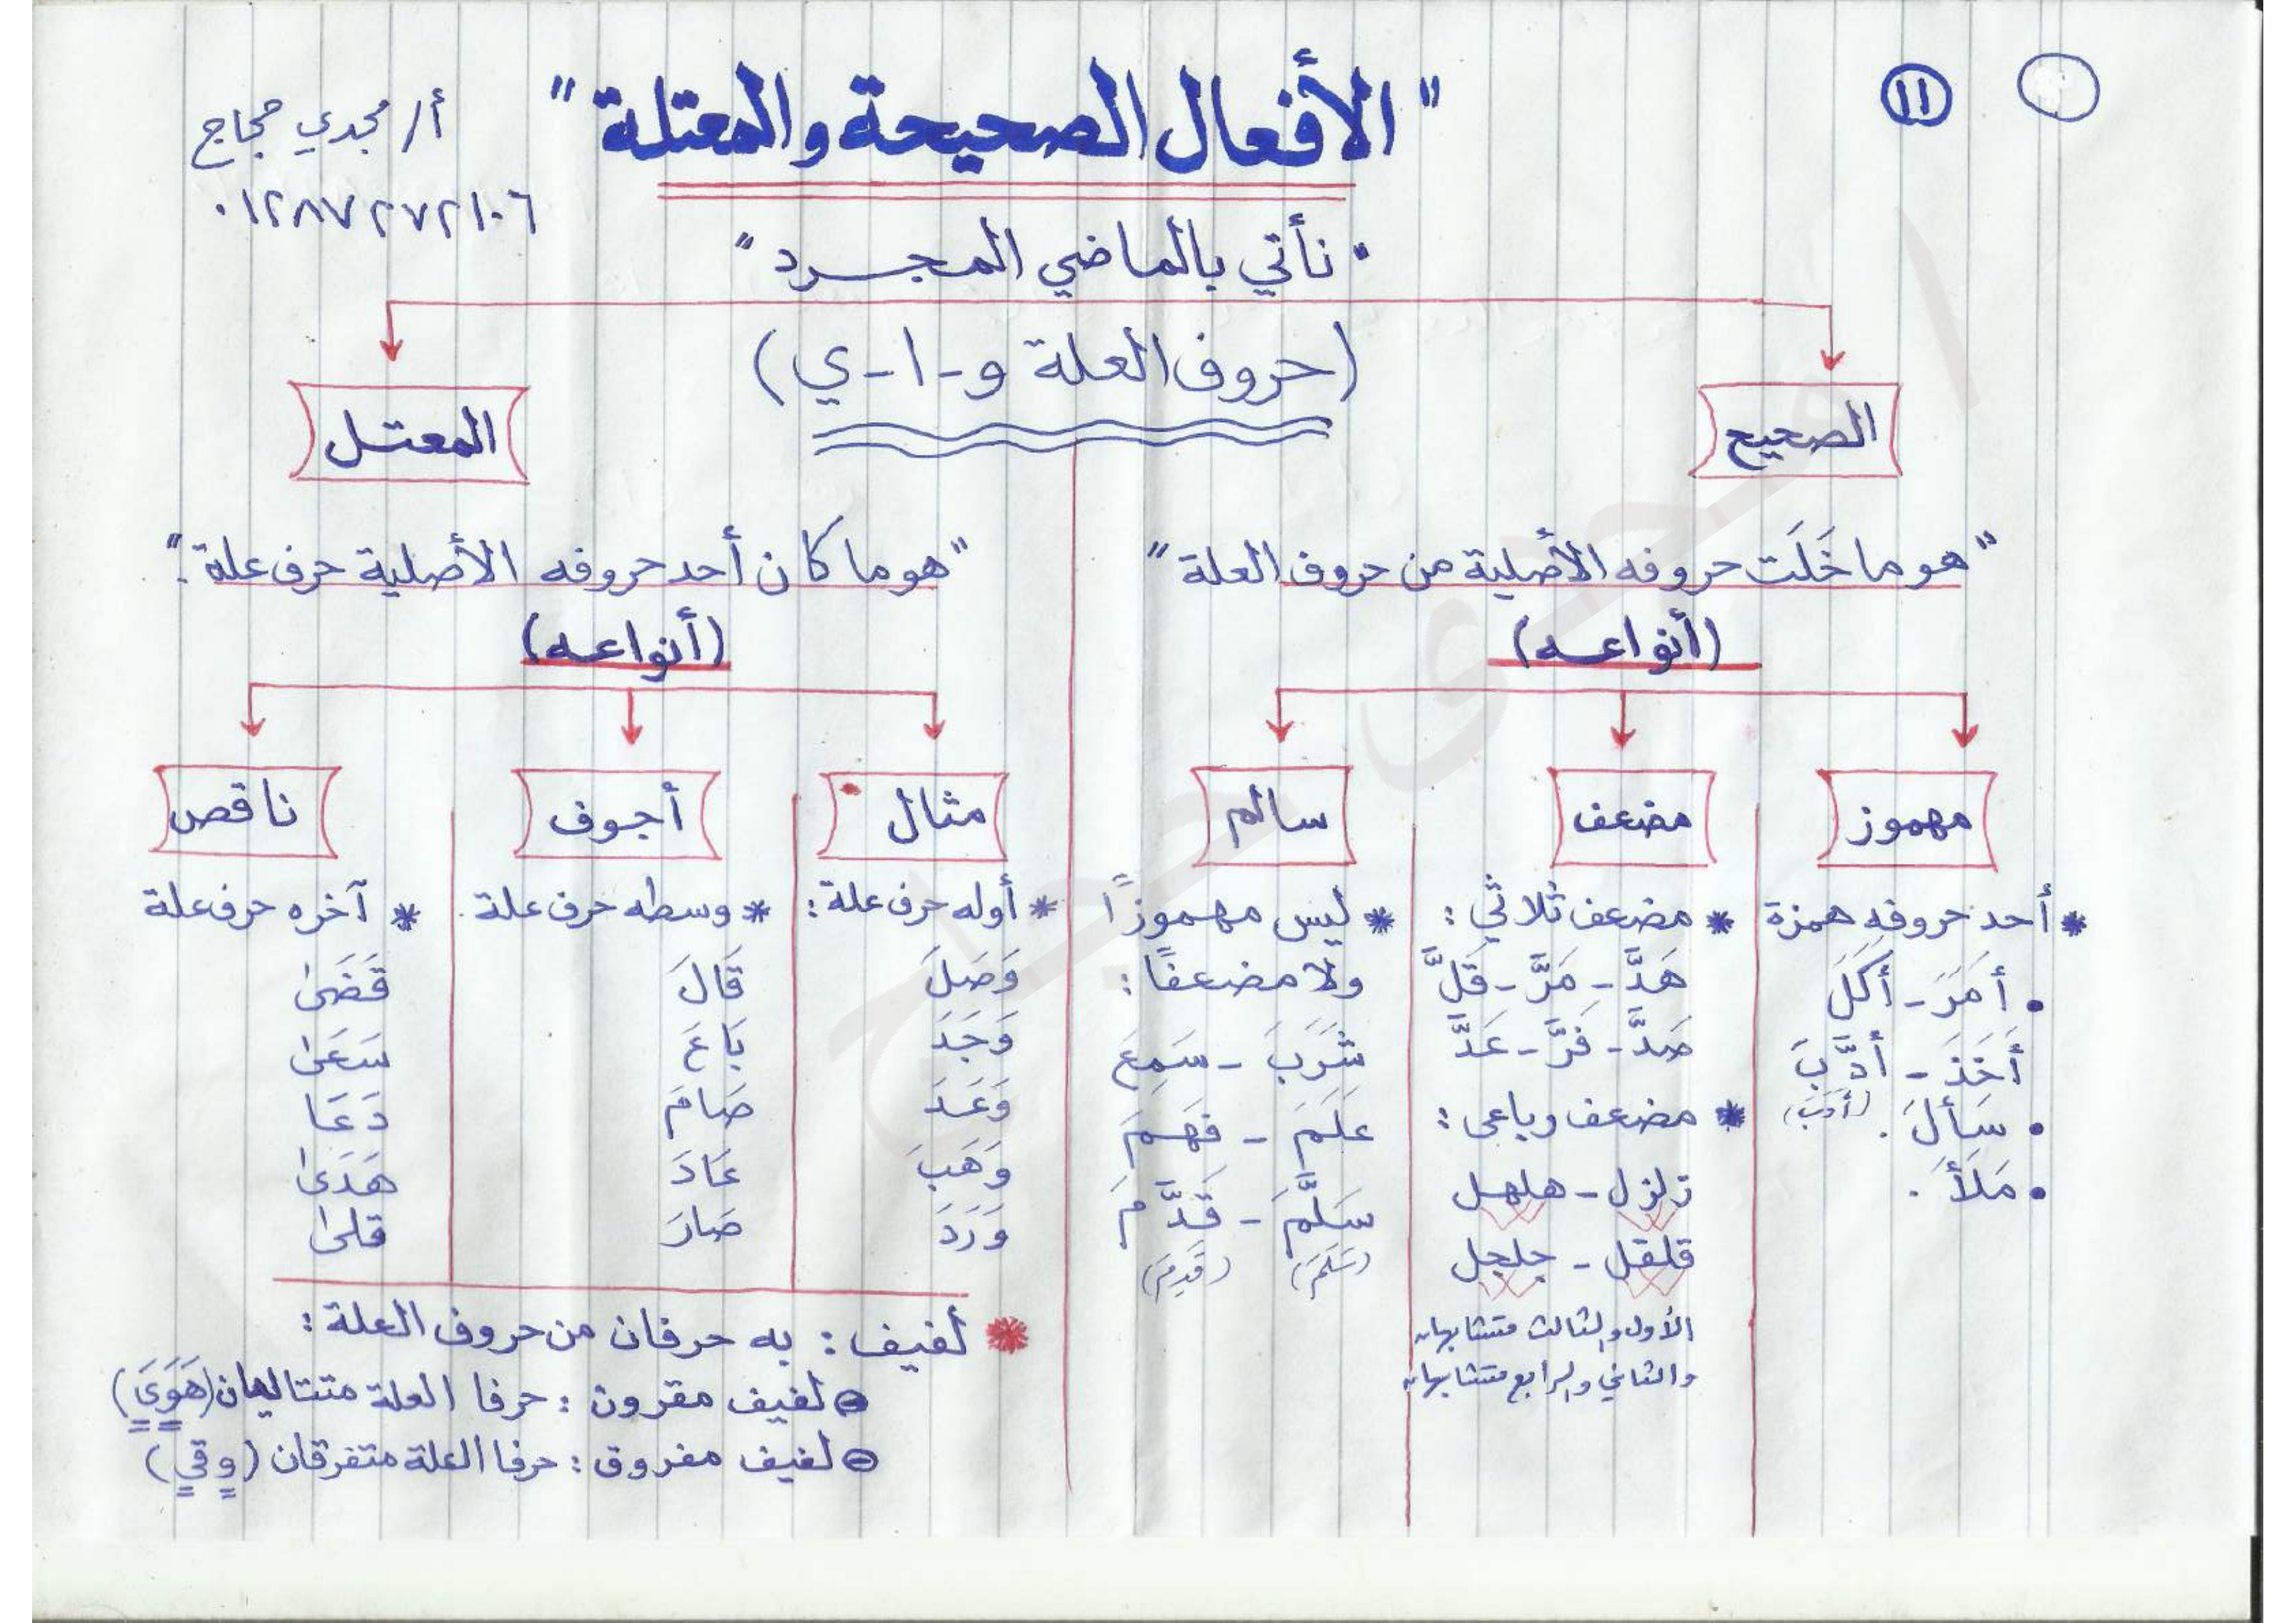 ١١
"الأفعال الصحيحة والمعتلة"
أ/ مجدي حجاج
٠١٢٨٧٢٧٢١٠٦
" نأتي بالماضي المجرد "
(حروف العلة و-ا-ي)
الصحيح
"هو ما خَلَت حروفه الأصلية من حروف العلة"
(أنواعه)
مهموز
* أحد حروفه همزة
• أَمَرَ - أَكَلَ
أَخَذَ - أَدَّبَ
(أَدَبَ)
• سَأَلَ .
• مَلَأَ .
مضعف
* مضعف ثلاثي :
هَدَّ - مَرَّ - قَلَّ
صَدَّ - فَرَّ - عَدَّ
* مضعف رباعى :
زلزل - هلهل
قلقل - جلجل
الأول والثالث متشابهان
والثاني والرابع متشابهان
سالم
* ليس مهموزًا
ولا مضعفًا :
شَرَبَ - سَمِعَ
عَلَمَ - فَهَمَ
سَلَّمَ - قَدَّمَ
(سَلَمَ) (قَدِمَ)
المعتل
"هو ما كان أحد حروفه الأصلية حرف علة."
(أنواعه)
مثال
* أوله حرف علة :
وَصَلَ
وَجَدَ
وَعَدَ
وَهَبَ
وَرَدَ
أجوف
* وسطه حرف علة .
قَالَ
بَاعَ
صَامَ
عَادَ
صَارَ
ناقص
* آخره حرف علة
قَضَى
سَعَى
دَعَا
هَدَى
قلى
* لفيف : به حرفان من حروف العلة :
لفيف مقرون : حرفا العلة متتاليان (هَوَىَ)
لفيف مفروق : حرفا العلة متفرقان (وقي)
مجدى حجاج